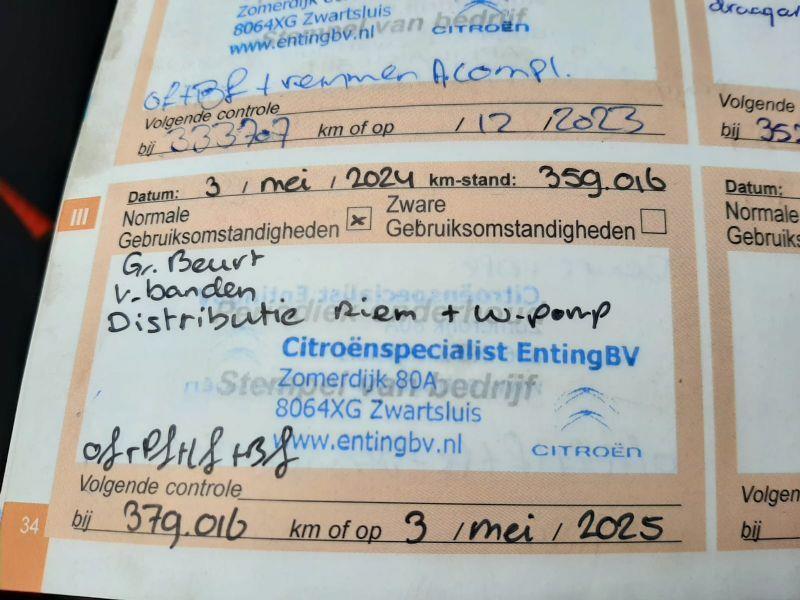 Zomerdijk 80A
8064XG Zwartsluis
www.entingbv.nl
Stempel van bedrijf
CITROËN
of+Bf + remmen A.compl.
Volgende controle
bij 333707 km of op / 12 / 2023
Volgende
bij 352
III
Datum: 3 / mei / 2024 km-stand: 359.016
Normale Gebruiksomstandigheden x
Zware Gebruiksomstandigheden
Gr. Beurt
v. banden
Distributie Riem + w.pomp
Citroënspecialist Enting BV
Zomerdijk 80A
Stempel van bedrijf
8064XG Zwartsluis
www.entingbv.nl
CITROËN
of+Pf+Lf+Bf
Volgende controle
bij 379.016 km of op 3 / mei / 2025
34
Datum:
Normale
Gebruiks
Volgen
bij